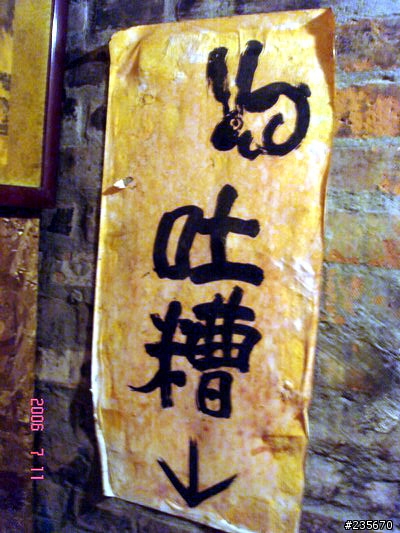 吐
糟
↓
2006 7 11
#235670